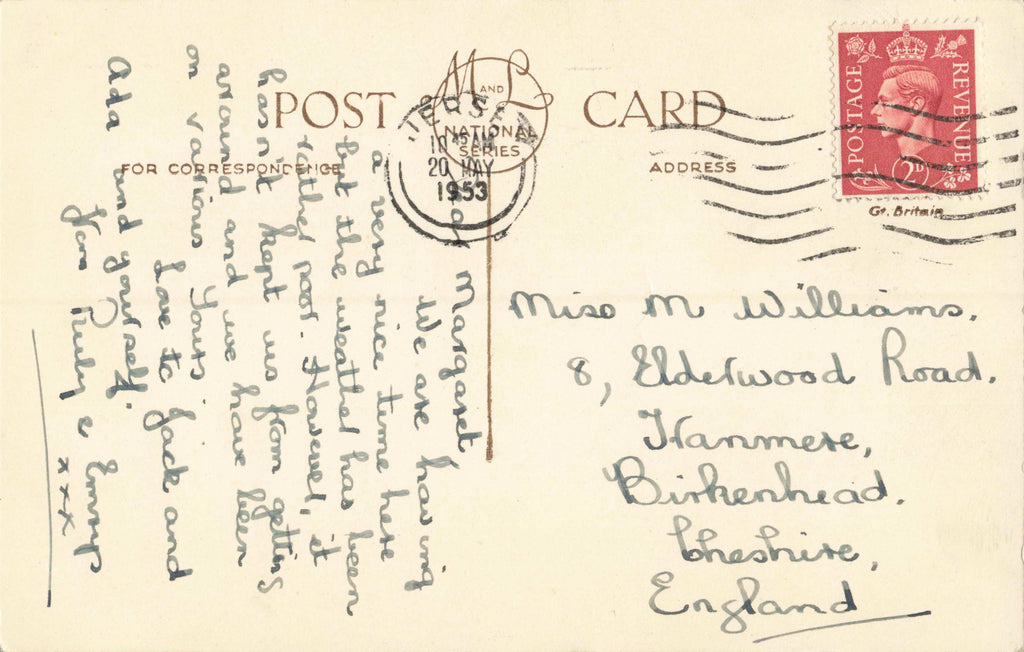 POST CARD
M AND L
NATIONAL
SERIES
FOR CORRESPONDENCE
ADDRESS
JERSEY
10 45 AM
20 MAY
1953
POSTAGE REVENUE
2D
Gt. Britain
Dear Margaret
We are having
a very nice time here
but the weather has been
rather poor. However, it
hasn't kept us from getting
around and we have been
on various Tours
Love to Jack and
Ada and yourself.
from Ruby & Emrys
xxx
Miss M Williams.
8, Elderwood Road.
Tranmere,
Birkenhead.
Cheshire,
England